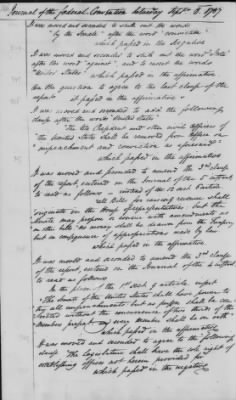 Journal of the federal Convention Saturday Sept. 8. 1787
It was moved and seconded to strike out the words
"by the Senate" after the word "conviction"
which passed in the Negative
It was moved and seconded to strike out the word "State"
after the word "against" and to insert the words
"United States" which passed in the affirmative
On the question to agree to the last clause of the
report it passed in the affirmative
It was moved and seconded to add the following
clause after the words "United States"
"The Vice President and other civil officers of
the United States shall be removed from office on
impeachment and conviction as aforesaid"
which passed in the affirmative
It was moved and seconded to amend the 3rd clause
of the report, entered on the Journal of the 5 instant
to read as follows instead of the 12 sect 6 article
"All Bills for raising revenue shall
originate in the House of representatives: but the
Senate may propose or concur with amendments as
on other bills. no money shall be drawn from the Treasury
but in consequence of appropriations made by law"
which passed in the affirmative
It was moved and seconded to amend the 3rd clause
of the report, entered on the Journal of the 4 instant
to read as follows
In the place of the 1st sect 9 article insert
"The Senate of the United States shall have power to
try all impeachments: but no person shall be con-
victed without the concurrence of two thirds of the
Members present: and every member shall be on oath"
which passed in the affirmative
It was moved and seconded to agree to the following
clause "The Legislature shall have the sole right of
establishing offices not herein provided for"
which passed in the negative